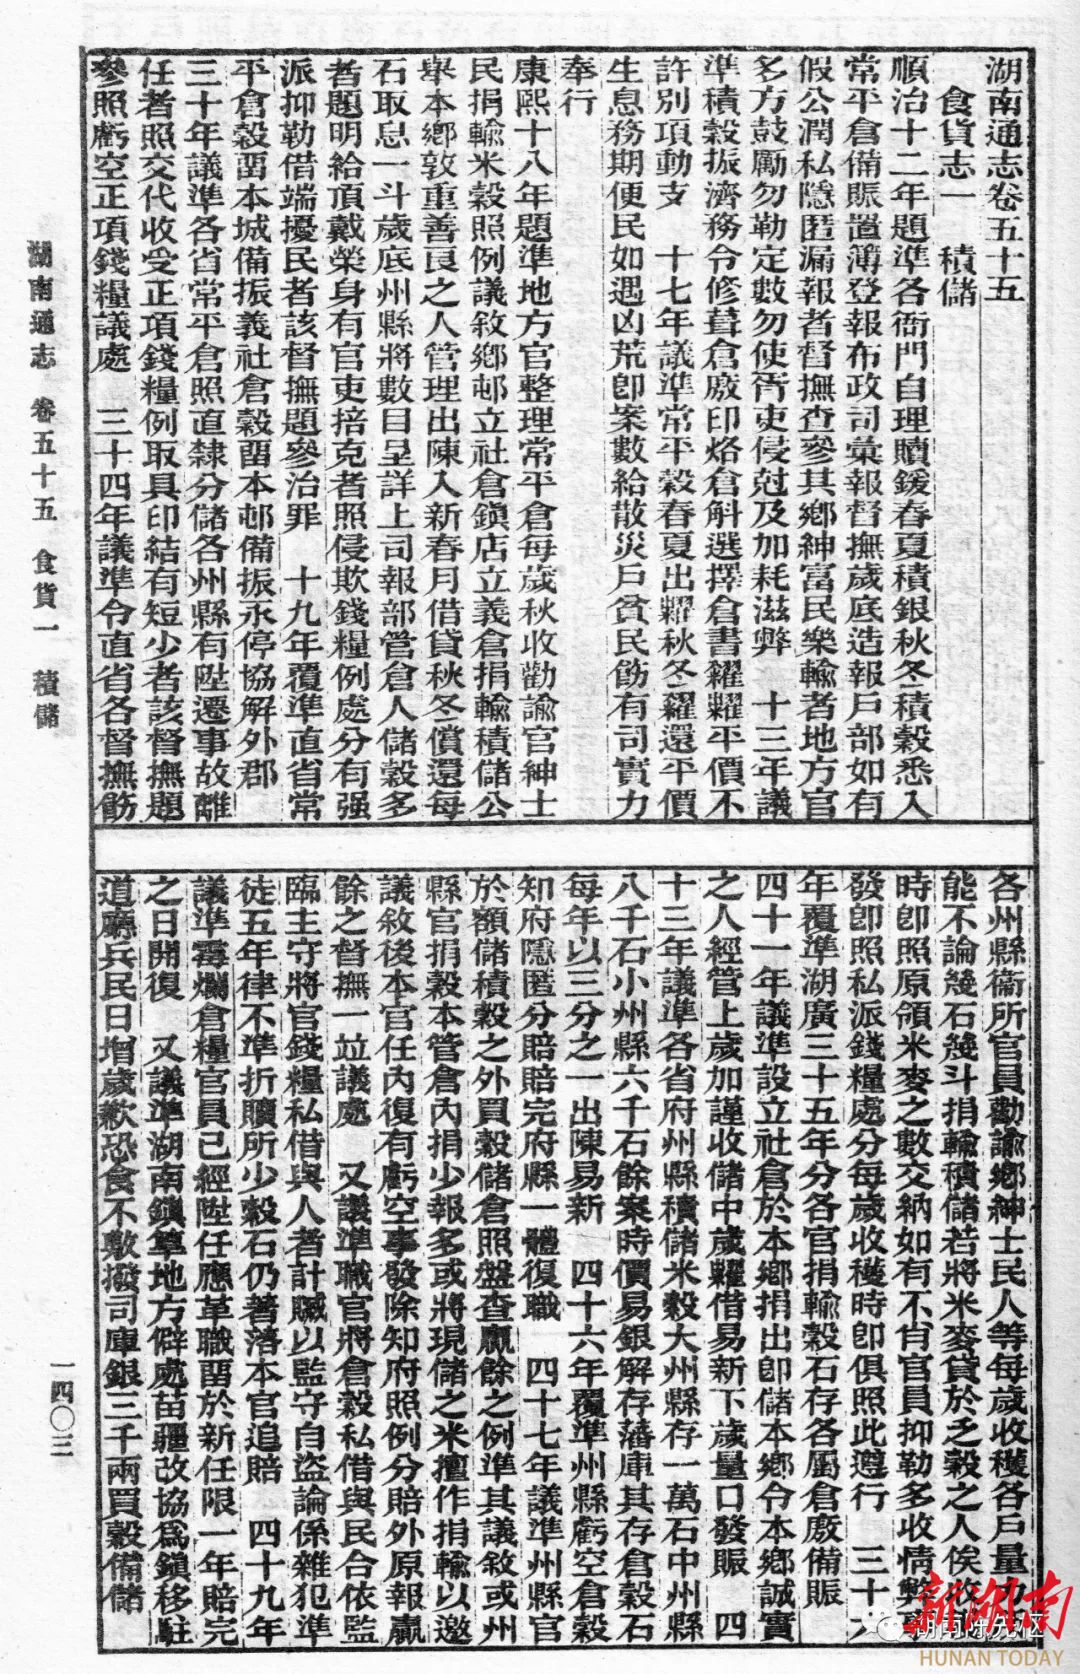 湖南通志卷五十五
食貨志一　積儲
順治十二年題準各衙門自理贖鍰春夏積銀秋冬積穀悉入
常平倉備賑置簿登報布政司彙報督撫歲底造報戶部如有
假公潤私隱匿漏報者督撫查參其鄉紳富民樂輸者地方官
多方鼓勵勿勒定數勿使胥吏侵尅及加耗滋弊　十三年議
準積穀振濟務令修葺倉廒印烙倉斛選擇倉書糴糶平價不
許別項動支　十七年議準常平穀春夏出糶秋冬糴還平價
生息務期便民如遇凶荒卽案數給散災戶貧民飭有司實力
奉行
康熙十八年題準地方官整理常平倉每歲秋收勸諭官紳士
民捐輸米穀照例議敘鄉邨立社倉鎭店立義倉捐輸積儲公
舉本鄉敦重善良之人管理出陳入新春月借貸秋冬償還每
石取息一斗歲底州縣將數目呈詳上司報部管倉人儲穀多
者題明給頂戴榮身有官吏掊克者照侵欺錢糧例處分有强
派抑勒借端擾民者該督撫題參治罪　十九年覆準直省常
平倉穀畱本城備振義社倉穀畱本邨備振永停協解外郡
三十年議準各省常平倉照直隸分儲各州縣有陞遷事故離
任者照交代收受正項錢糧例取具印結有短少者該督撫題
參照虧空正項錢糧議處　三十四年議準令直省各督撫飭
各州縣衞所官員勸諭鄉紳士民人等每歲收穫各戶量
能不論幾石幾斗捐輸積儲若將米麥貸於乏穀之人俟收
時卽照原領米麥之數交納如有不肖官員抑勒多收情弊
發卽照私派錢糧處分每歲收穫時卽俱照此遵行　三十六
年覆準湖廣三十五年分各官捐輸穀石存各屬倉廒備賑
四十一年議準設立社倉於本鄉捐出卽儲本鄉令本鄉誠實
之人經管上歲加謹收儲中歲糶借易新下歲量口發賑　四
十三年議準各省府州縣積儲米穀大州縣存一萬石中州縣
八千石小州縣六千石餘案時價易銀解存藩庫其存倉穀石
每年以三分之一出陳易新　四十六年覆準州縣虧空倉穀
知府隱匿分賠完府縣一體復職　四十七年議準州縣官
於額儲積穀之外買穀儲倉照盤查贏餘之例準其議敘或州
縣官捐穀本管倉內捐少報多或將現儲之米擅作捐輸以邀
議敘後本官任內復有虧空事發除知府照例分賠外原報贏
餘之督撫一竝議處　又議準職官將倉穀私借與民合依監
臨主守將官錢糧私借與人者計贓以監守自盜論係雜犯準
徒五年律不準折贖所少穀石仍著落本官追賠　四十九年
議準霉爛倉糧官員已經陞任應革職畱於新任限一年賠完
之日開復　又議準湖南鎭筸地方僻處苗疆改協爲鎭移駐
道廳兵民日增歲歉恐食不敷撥司庫銀三千兩買穀備儲
湖南通志　卷五十五　食貨一　積儲
一四〇三
新湖南
HUNAN TODAY